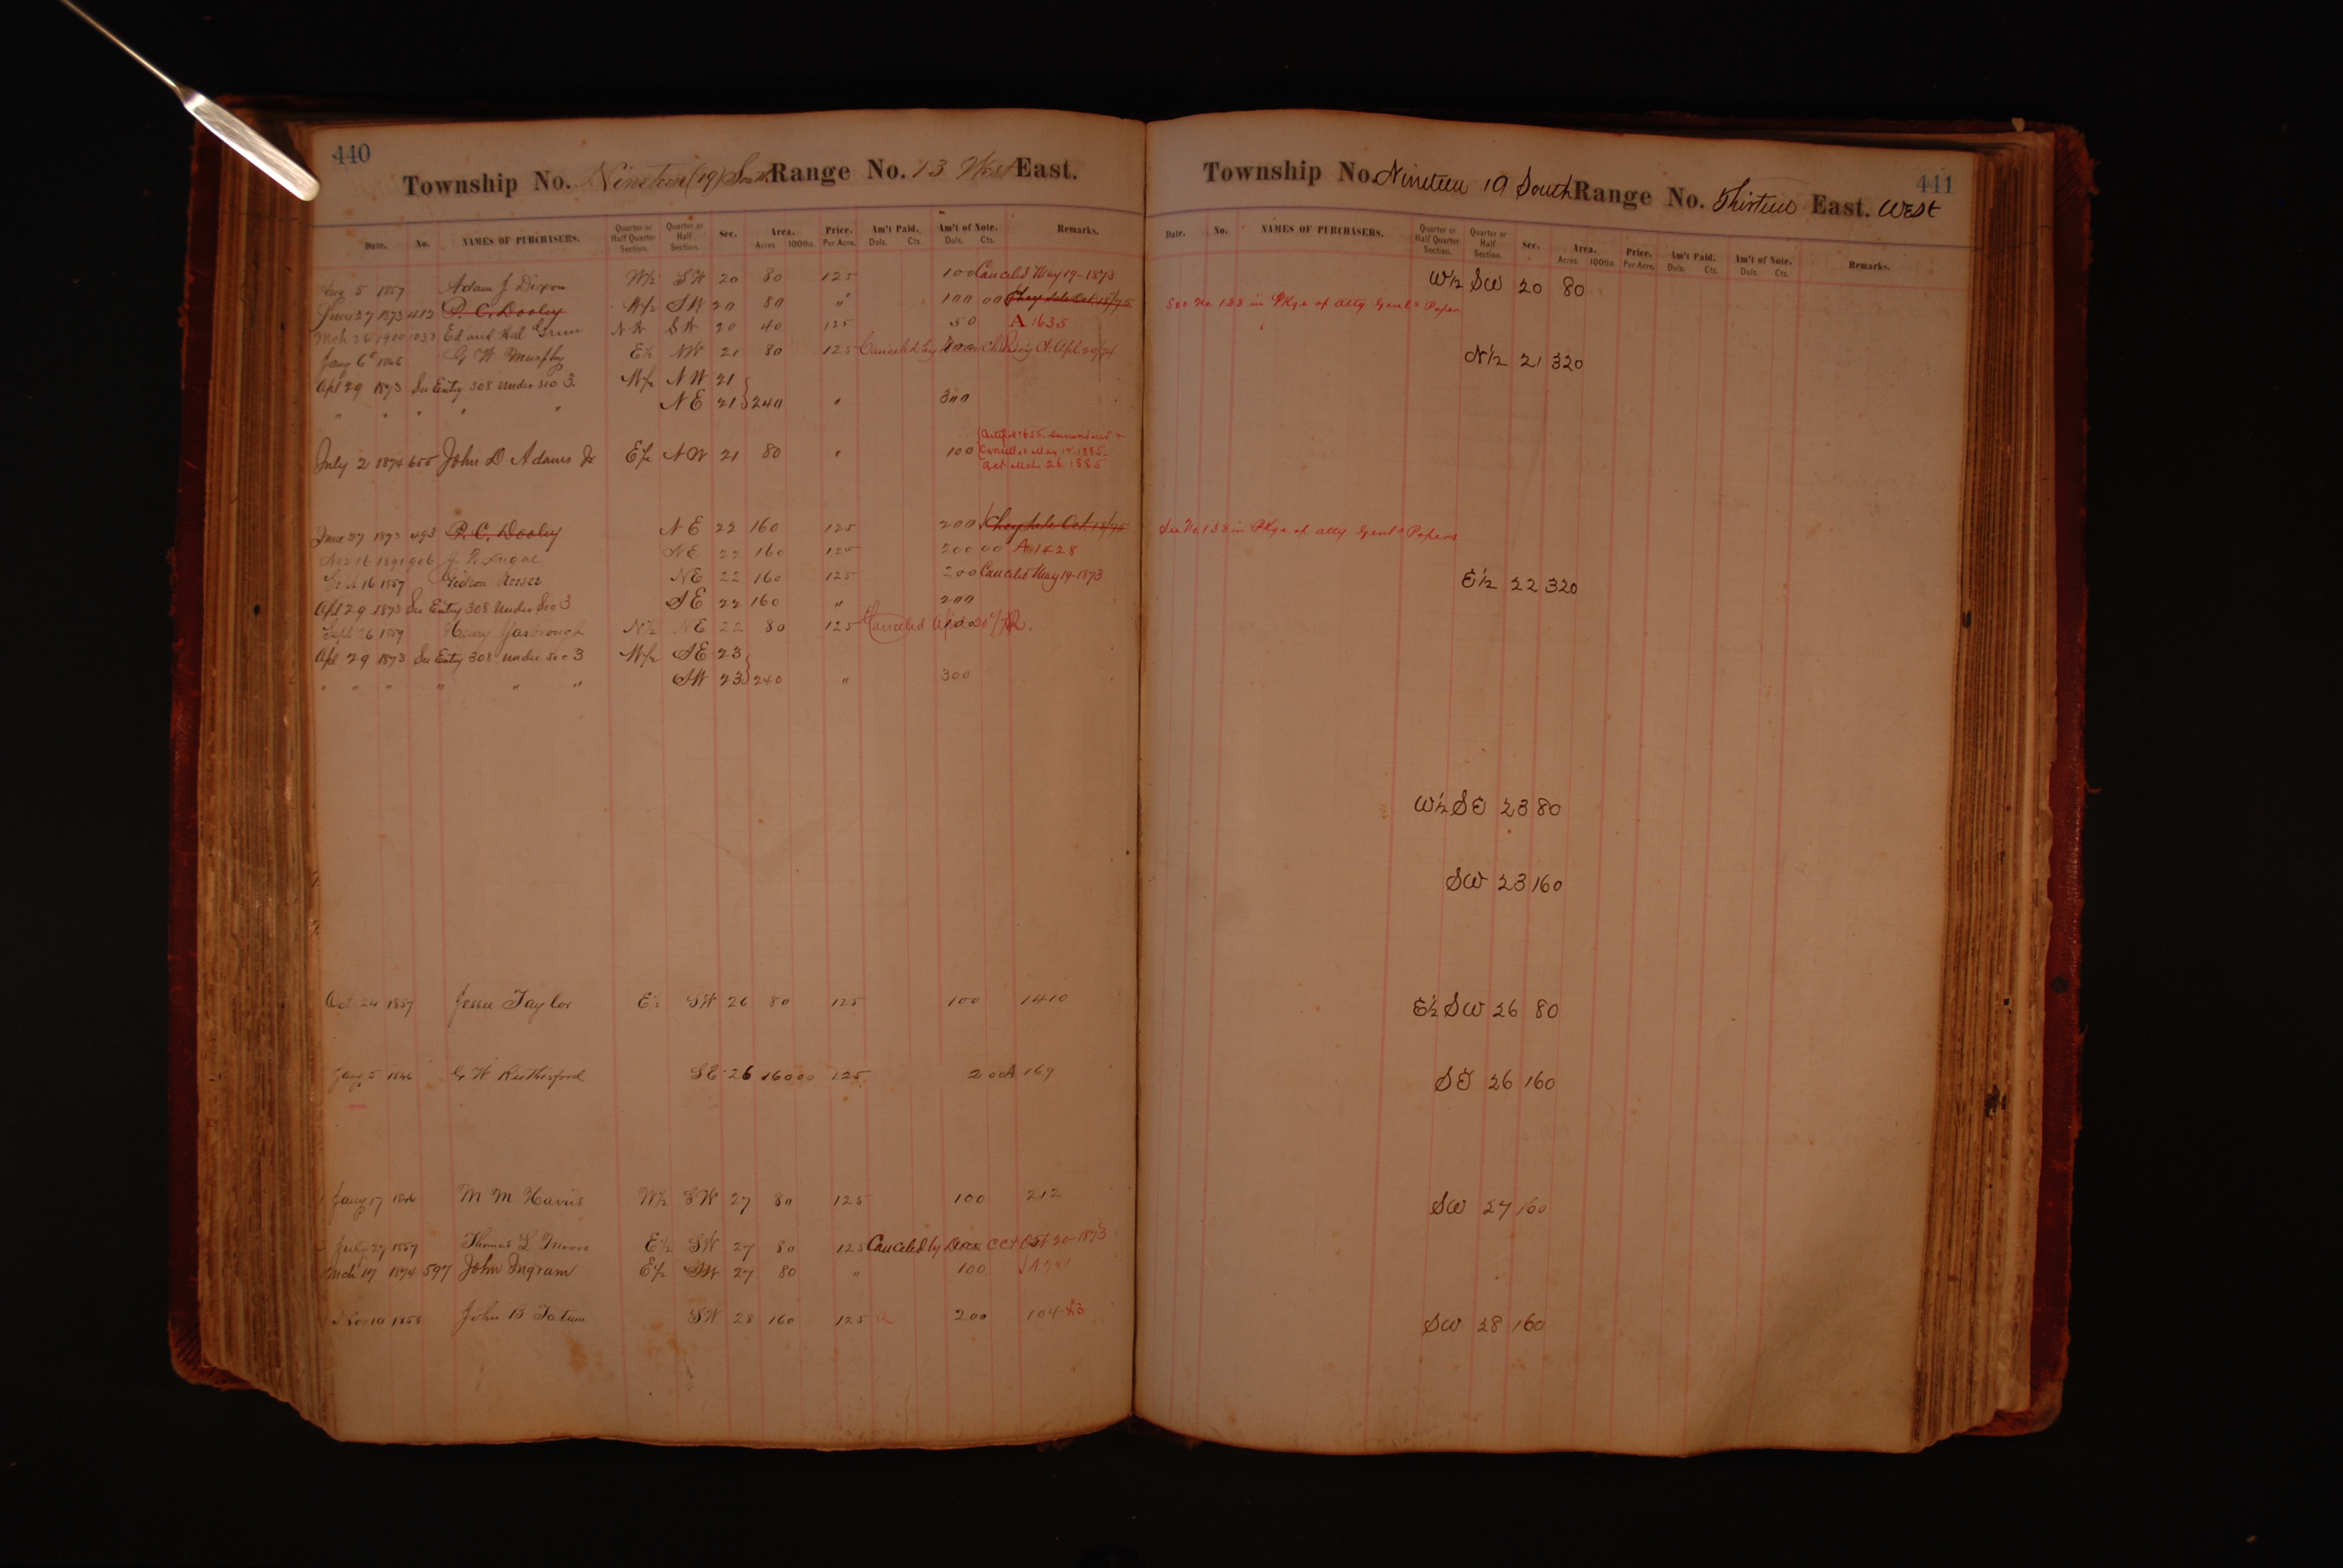 440
Township No. Nineteen (19) South Range No. 13 West East.
Date. No. NAMES OF PURCHASERS. Quarter or Half Quarter Section. Quarter or Half Section. Sec. Area. Acres 100ths. Price. Per Acre. Am't Paid. Dols. Cts. Am't of Note. Dols. Cts. Remarks.
Aug 5 1857 Adam J Dixon W½ SW 20 80 125 100 Canceled May 19-1873
June 27 1873 412 P. C. Dooley W½ SW 20 80 " 100 00 Chey Sale Oct. 18/75
Mch 26 1900 Ed and Hal NW SW 20 40 125 50 A 1635
Jany 6 1846 G W Murphy E½ NW 21 80 125 Canceled by Ct. Apl 20/74
Apl 29 1873 See Entry 308 under sec 3. W½ NW 21
" " " " " NE 21 240 " 300
July 2 1874 655 John D Adams Jr E½ NW 21 80 " 100 Certif. 655. Surrendered &
Cancelled May 1885.
act Mch. 26. 1885
June 27 1873 493 P. C. Dooley NE 22 160 125 200 Chey Sale Oct. 18/75
16 1891 906 NE 22 160 125 200 00 A 1428
16 1857 Gideon NE 22 160 125 200 Canceled May 19-1873
Apl 29 1873 See Entry 308 under Sec 3 SE 22 160 " 200
Sept 26 1859 Henry Yarbrough N½ NE 22 80 125 Canceled
Apl 29 1873 See Entry 308 under sec 3 W½ SE 23
" " " " " " SW 23 240 " 300
Oct 24 1857 Jesse Taylor E½ SW 26 80 125 100 1410
Jany 5 1846 G W Rutherford SE 26 160 00 125 200 A 169
Jany 17 1846 M M Harris W½ SW 27 80 125 100 212
July 27 1857 Thomas L Moore E½ SW 27 80 125 Canceled by Oct 20-1873
Mch 17 1874 597 John Ingram E½ SW 27 80 " 100
Nov 10 1858 John B Tatum SW 28 160 125 R 200 104
441
Township No. Nineteen 19 South Range No. Thirteen East. West
Date. No. NAMES OF PURCHASERS. Quarter or Half Quarter Section. Quarter or Half Section. Sec. Area. Acres 100ths. Price. Per Acre. Am't Paid. Dols. Cts. Am't of Note. Dols. Cts. Remarks.
W½ SW 20 80
See No 138 in Pkge of Atty Genl's Papers
N½ 21 320
See No 138 in Pkge of Atty Genl's Papers
E½ 22 320
W½ SE 23 80
SW 23 160
E½ SW 26 80
SE 26 160
SW 27 160
SW 28 160